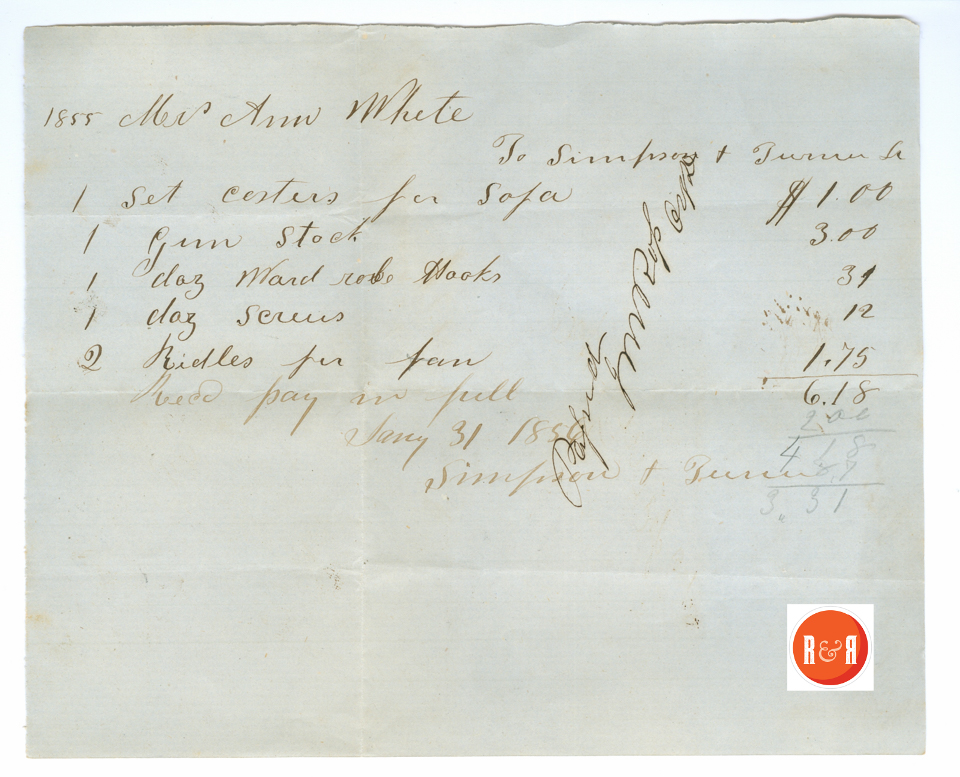 1855 Mrs Ann White
To Simpson + Turner Dr
1 Set costers for Sofa $1.00
1 Gun Stock 3.00
1 doz Ward robe Hooks 31
1 doz Screws 12
2 Ridles for fan 1.75
6.18
Recd pay in full
2.00
Jany 31 1856
4 18
87
Simpson + Turner
3,, 31
R&R